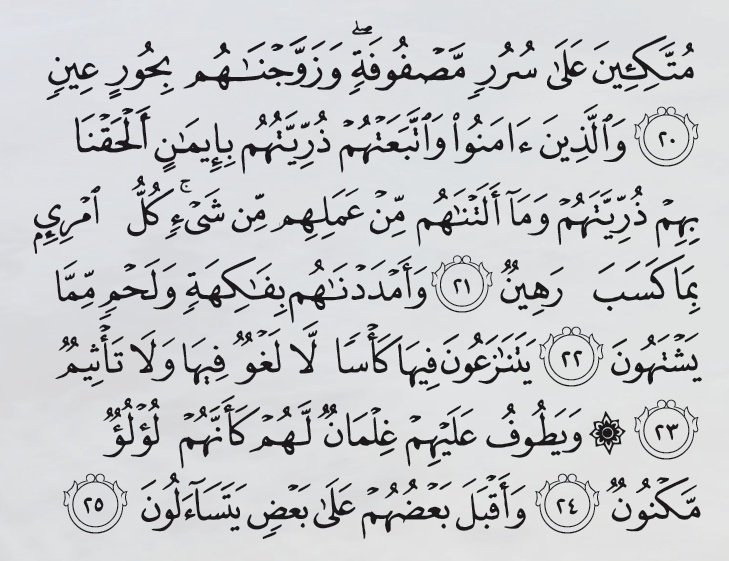 مُتَّكِـِٔينَ عَلَىٰ سُرُرٖ مَّصۡفُوفَةٖۖ وَزَوَّجۡنَٰهُم بِحُورٍ عِينٖ
٢٠ وَٱلَّذِينَ ءَامَنُواْ وَٱتَّبَعَتۡهُمۡ ذُرِّيَّتُهُم بِإِيمَٰنٍ أَلۡحَقۡنَا
بِهِمۡ ذُرِّيَّتَهُمۡ وَمَآ أَلَتۡنَٰهُم مِّنۡ عَمَلِهِم مِّن شَيۡءٖۚ كُلُّ ٱمۡرِيِٕۭ
بِمَا كَسَبَ رَهِينٞ ٢١ وَأَمۡدَدۡنَٰهُم بِفَٰكِهَةٖ وَلَحۡمٖ مِّمَّا
يَشۡتَهُونَ ٢٢ يَتَنَٰزَعُونَ فِيهَا كَأۡسٗا لَّا لَغۡوٞ فِيهَا وَلَا تَأۡثِيمٞ
٢٣ ۞ وَيَطُوفُ عَلَيۡهِمۡ غِلۡمَانٞ لَّهُمۡ كَأَنَّهُمۡ لُؤۡلُؤٞ
مَّكۡنُونٞ ٢٤ وَأَقۡبَلَ بَعۡضُهُمۡ عَلَىٰ بَعۡضٖ يَتَسَآءَلُونَ ٢٥